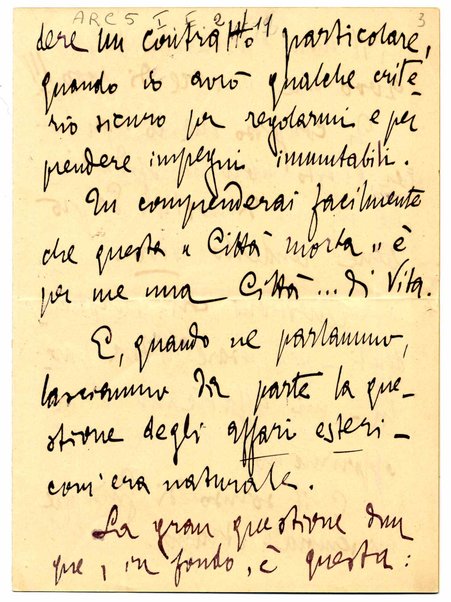 ARC 5 I E 2/11
3
dere un contratto particolare,
quando io avrò qualche crite-
rio sicuro per regolarmi e per
prendere impegni immutabili.
Tu comprenderai facilmente
che questa « Città morta » è
per me una Città ... di Vita.
E, quando ne parlammo,
lasciammo da parte la que-
stione degli affari esteri –
com'era naturale.
La gran questione dun
que, in fondo, è questa: